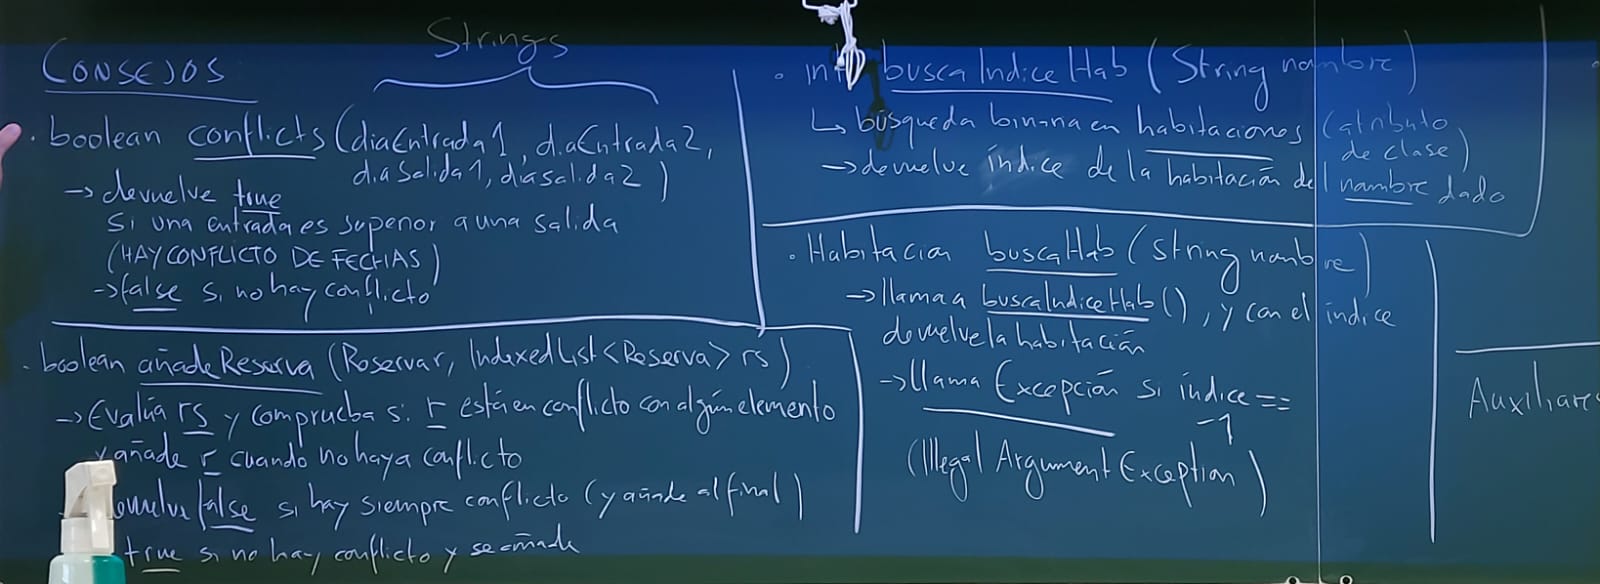 CONSEJOS
Strings
· boolean conflicts (diaEntrada1, diaEntrada2,
diaSalida1, diaSalida2)
→ devuelve true
si una entrada es superior a una salida
(HAY CONFLICTO DE FECHAS)
→ false si no hay conflicto
· boolean añadeReserva (Reserva r, IndexedList<Reserva> rs)
→ Evalúa rs y comprueba si r está en conflicto con algún elemento
y añade r cuando no haya conflicto
false si hay siempre conflicto (y añade al final)
true si no hay conflicto y se añade
· int buscaIndiceHab (String nombre)
↳ búsqueda binaria en habitaciones (atributo
de clase)
→ devuelve índice de la habitación del nombre dado
· Habitacion buscaHab (String nombre)
→ llama a buscaIndiceHab(), y con el índice
devuelve la habitación
→ llama Excepción si índice ==
-1
(Illegal Argument Exception)
Auxiliares